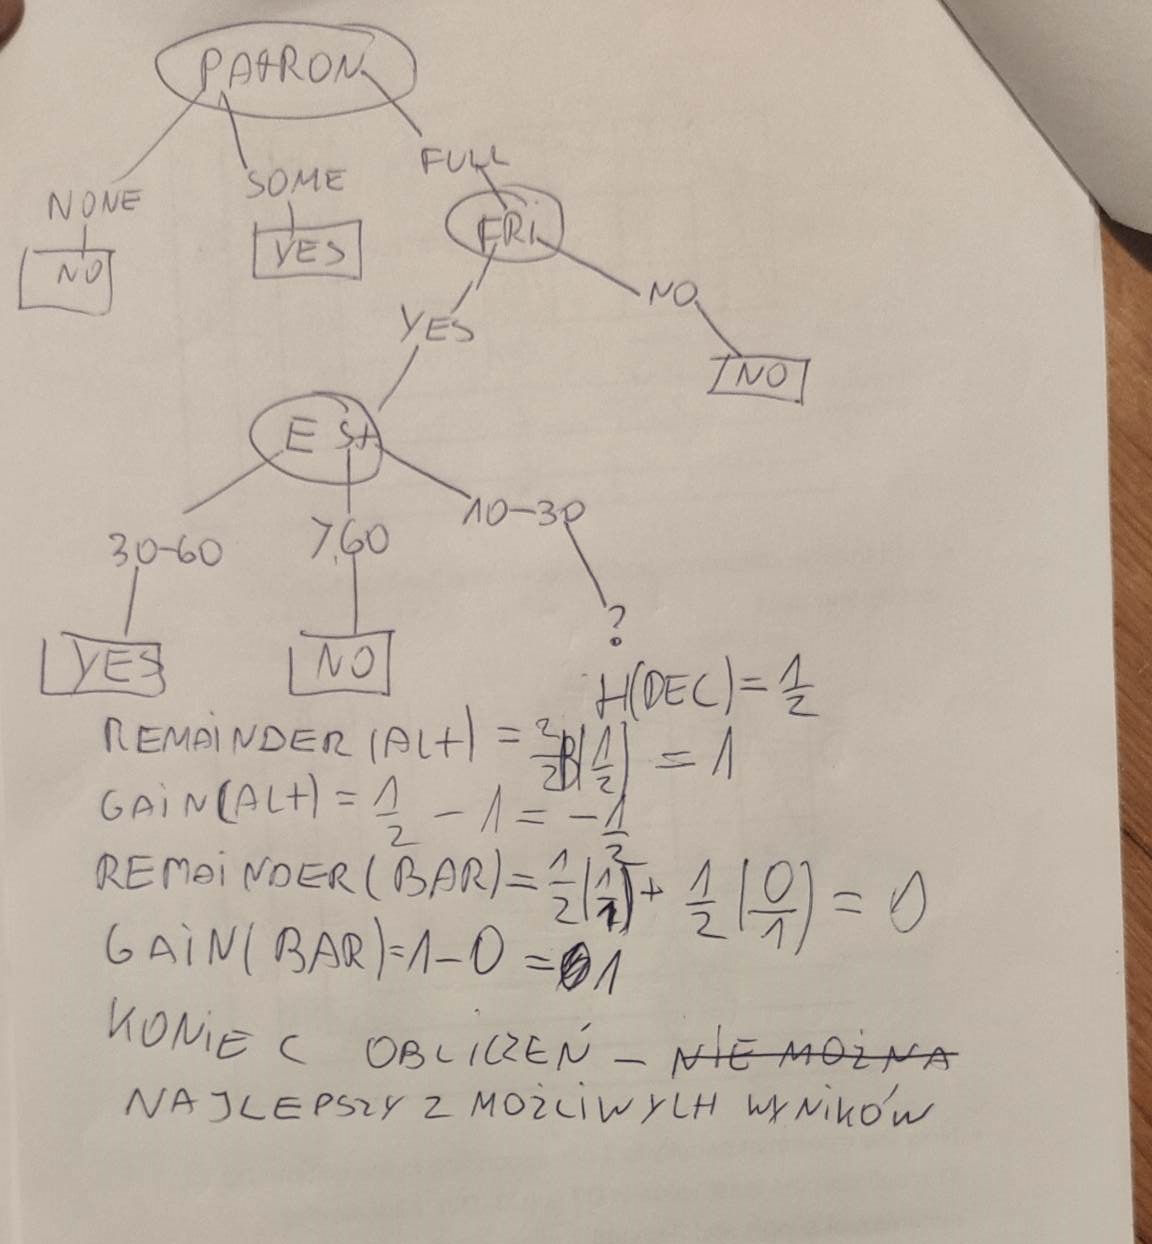 PATRON
NONE
SOME
FULL
NO
YES
FRi
YES
NO
NO
ESt
30-60
>60
10-30
YES
NO
?
H(DEC) = 1/2
REMAiNDER (ALt) = 2/2 B(1/2) = 1
GAiN(ALt) = 1/2 - 1 = -1/2
REMAiNDER (BAR) = 1/2 (1/1) + 1/2 (0/1) = 0
GAiN(BAR) = 1-0 = 1
KONiEC OBLiCZEŃ - NIE MOŻNA
NAJLEPSZY Z MOŻLiWYCH WYNiKÓW